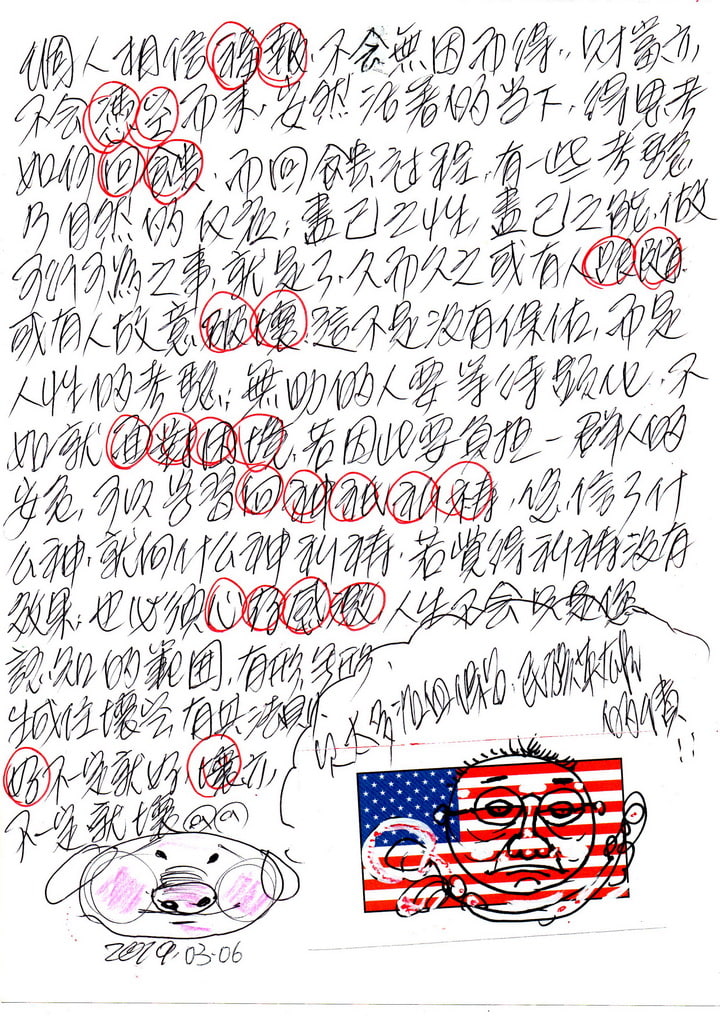 個人相信福報.不会無因而得,.財富亦,
不会憑空而来.安然活著的当下,得思考
如何回饋,而回饋过程,有一些考驗,
乃自然的仪轨,盡己之性,盡己之能,做
可行可為之事,就是了,久而久之或有人跟隨.
或有人故意破壞.這不是沒有保佑,而是
人性的考驗,.無助的人要等待顯化,不
如就面對困境,若因此要負担一群人的
安危,可以学習向神衹祈祷,您,信了什
么神,就向什么神祈祷,若覚得祈祷没有
效果,也必须心存感激 人生不会只是您
認知的範囲,有形無形
生成住壞空有其法則.
好不一定就好,壞亦,
不一定就壞
的情!!
2019.03-06